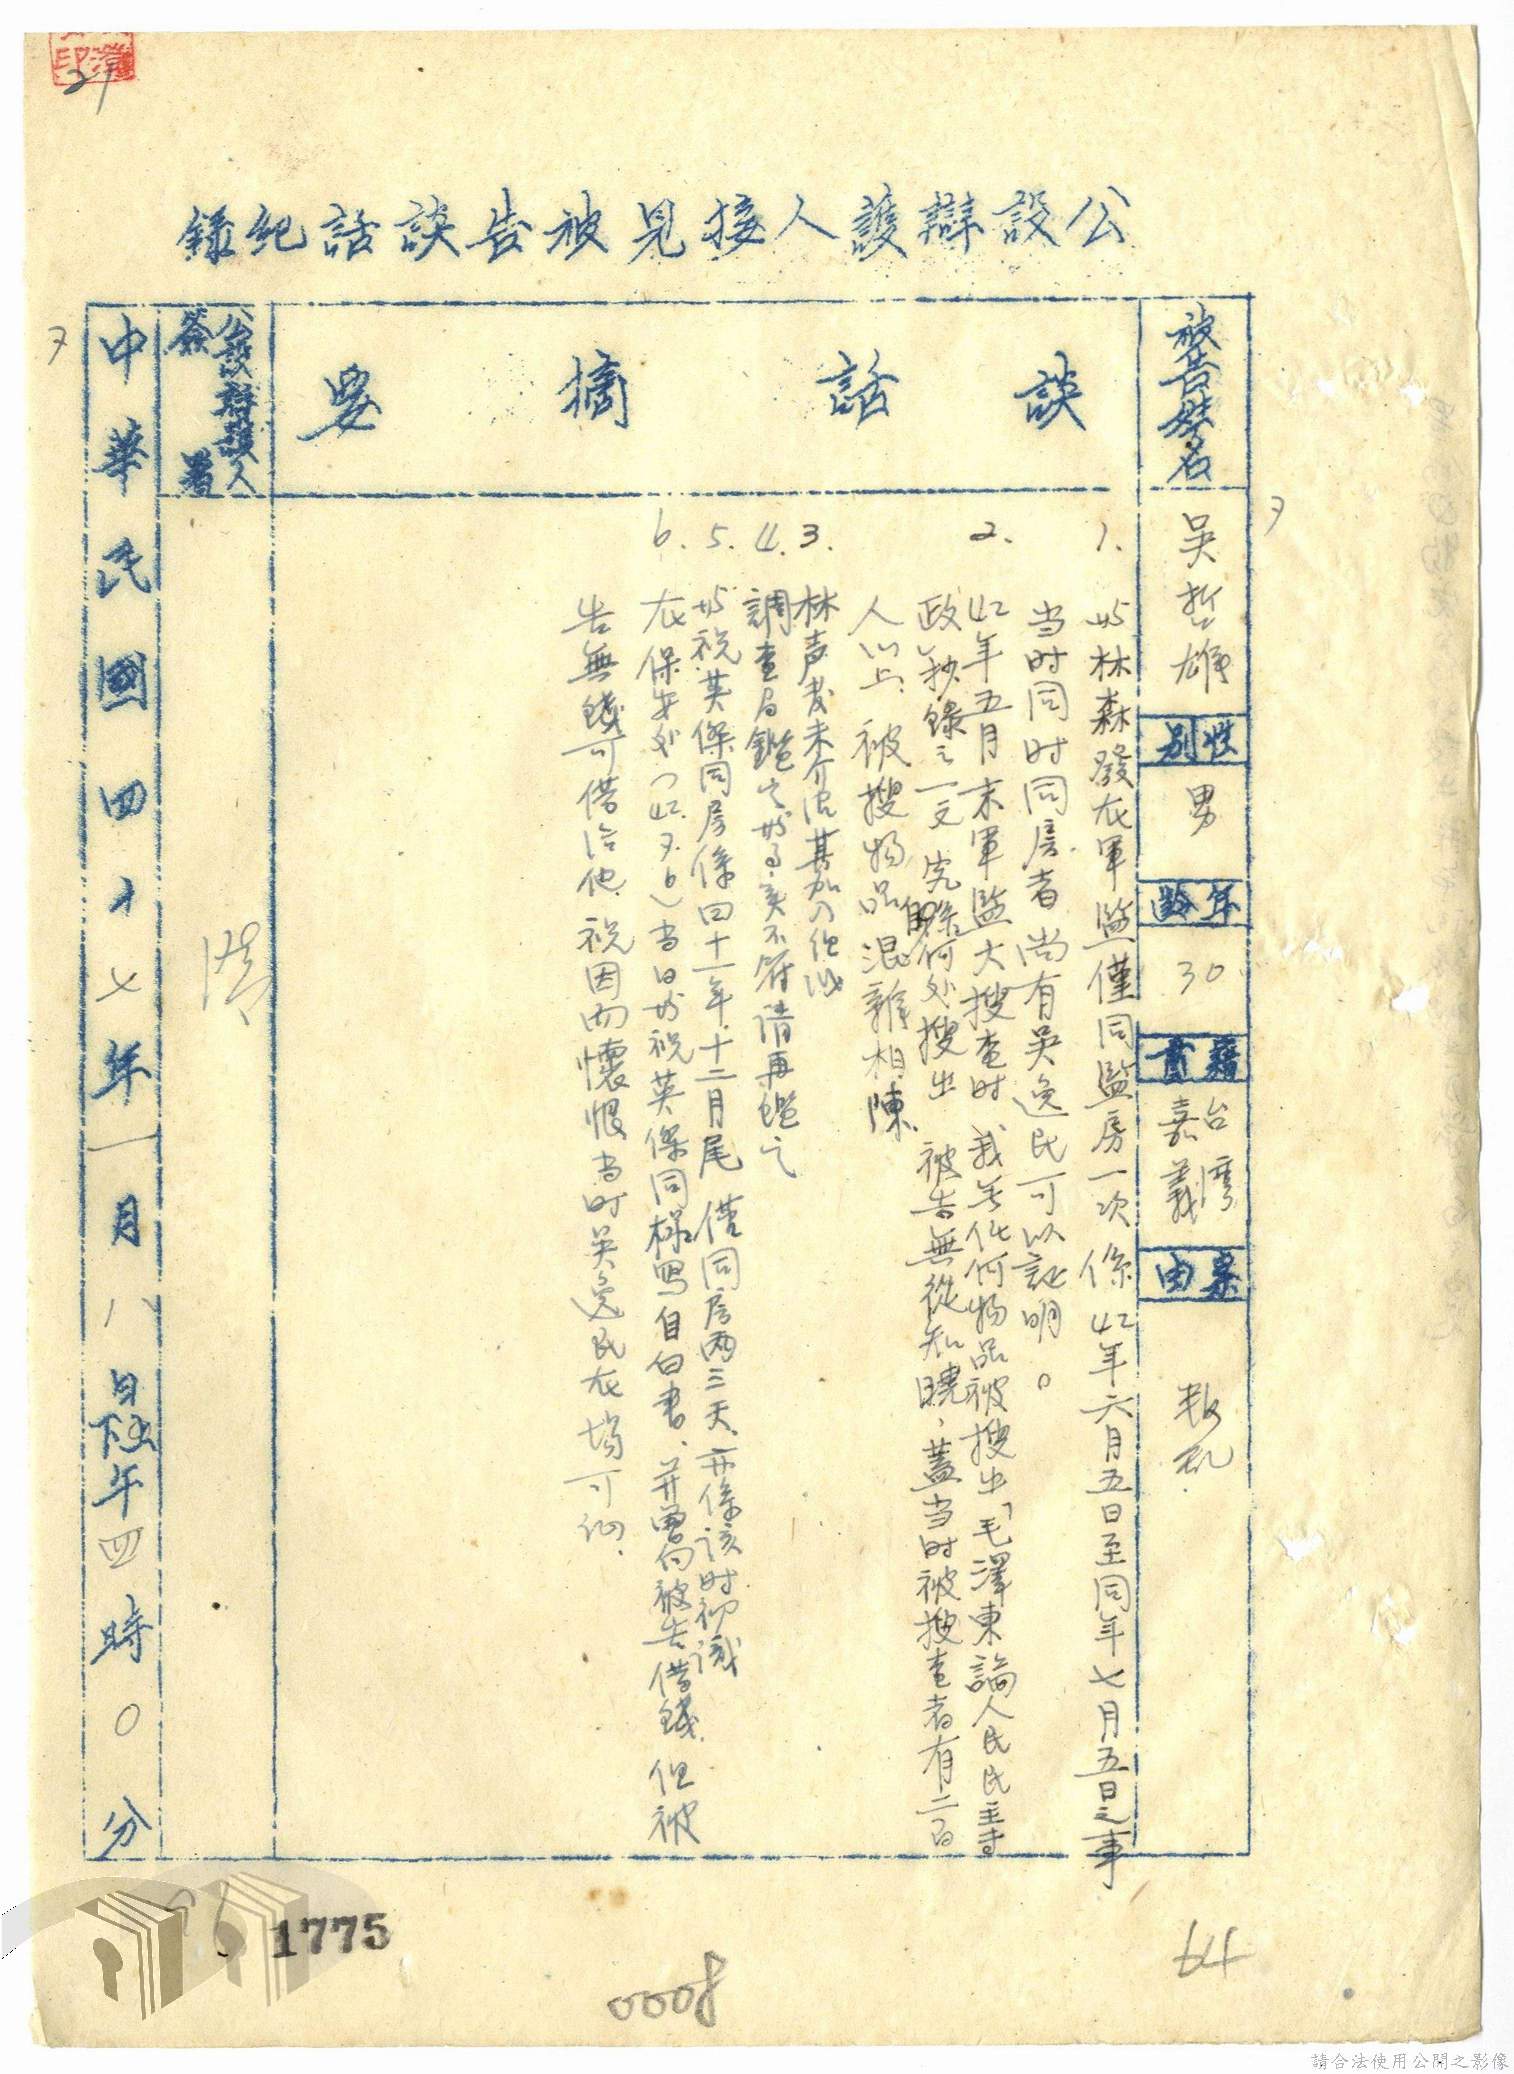 公設辯護人接見被告談話紀錄
被告姓名
吳哲雄
性別
男
年齡
30
籍貫
台灣
嘉義
案由
叛乱
談話摘要
1. 與林森發在軍監僅同監房一次係42年六月五日至同年七月五日之事
当时同时同房者尚有吳逸民可以証明。
2. 42年五月末軍監大搜查时我無任何物品被搜出「毛澤東論人民民主專
政」抄錄之一文究係何处搜出被告無從知曉、蓋当时被搜查者有二百
人以上、被搜物品混雜相陳
3. 林声发未介紹其加入組織
4. 調查局鑑定與事實不符請再鑑定
5. 與祝英傑同房係四十一年十二月尾僅同房两三天、亦係該时初識
6. 在保安处(42.7.6)当日與祝英傑同樣寫自白書、并曾向被告借錢、但被
告無錢可借給他、祝因而懷恨当时吳逸民在場可証、
公設辯護人
簽署
中華民國四十七年一月八日下午四時0分
21
7
7
1775
0008
64
請合法使用公開之影像